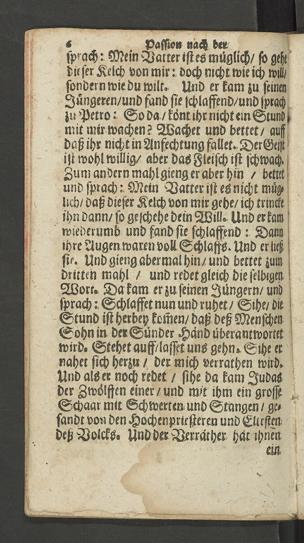 6 Passion nach der
sprach: Mein Vatter ist es müglich/ so gehe
dieser Kelch von mir: doch nicht wie ich will/
sondern wie du wilt. Und er kam zu seinen
Jüngeren/und fand sie schlaffend/und sprach
zu Petro: So da/ könt ihr nicht ein Stund
mit mir wachen? Wachet und bettet/ auff
daß ihr nicht in Anfechtung fallet. Der Geist
ist wohl willig/ aber das Fleisch ist schwach.
Zum andern mahl gieng er aber hin / bettet
und sprach: Mein Vatter ist es nicht müg-
lich/ daß dieser Kelch von mir gehe/ ich trincke
ihn dann/ so geschehe dein Will. Und er kam
wiederumb und fand sie schlaffend: Dann
ihre Augen waren voll Schlaffs. Und er ließ
sie. Und gieng abermal hin/ und bettet zum
dritten mahl / und redet gleich die selbigen
Wort. Da kam er zu seinen Jüngern/ und
sprach: Schlaffet nun und ruhet/ Sihe/ die
Stund ist herbey kom̃en/ daß deß Menschen
Sohn in der Sünder Händ überantwortet
wird. Stehet auff/ lasset uns gehn. Sihe er
nahet sich herzu/ der mich verrathen wird.
Und als er noch redet / sihe da kam Judas
der Zwölfften einer/ und mit ihm ein grosse
Schaar mit Schwerten und Stangen/ ge-
sandt von den Hochenpriesteren und Eltesten
deß Volcks. Und der Verräther hat ihnen
ein